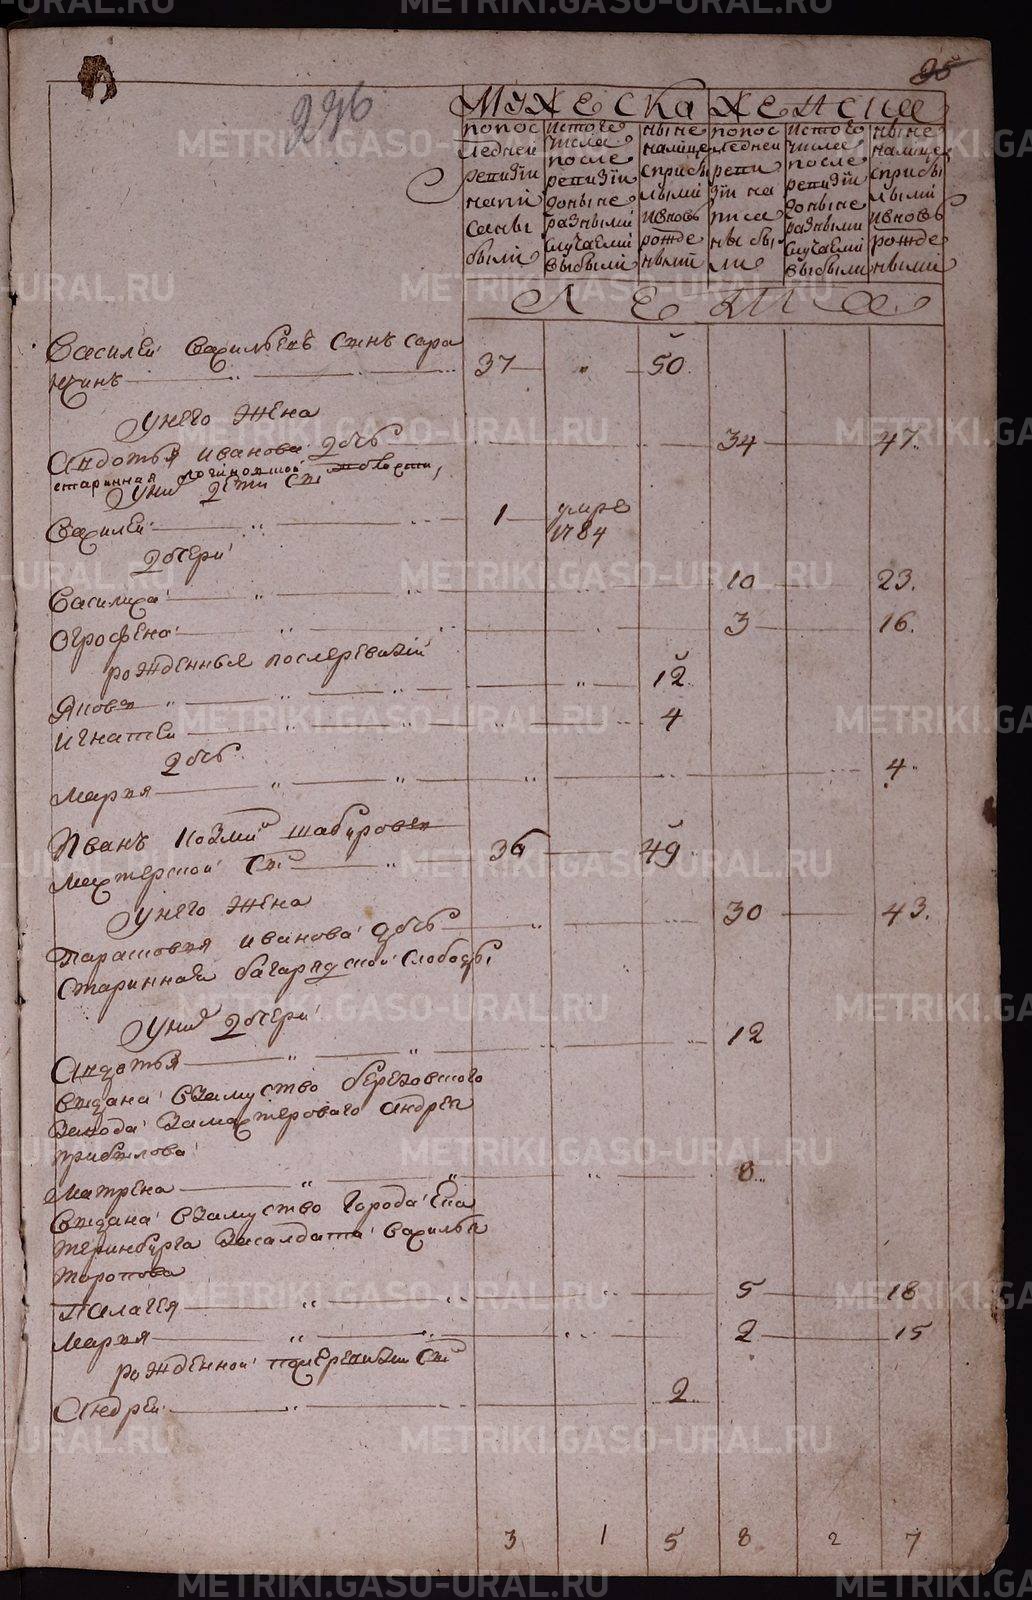 METRIKI.GASO-URAL.RU
25
226
Мужеска Женска
попос
ледней
ревизïи
напи
саны
были
истого
числа
после
ревизïи
доныне
разными
случаеми
выбыли
ныне
налице
сприбы
лыми
ивновь
рожде
нными
попос
ледней
реви
зïи на
писа
ны бы
ли
истого
числа
после
ревизïи
доныне
разными
случаеми
выбыли
ныне
налице
сприбы
лыми
ивновь
рожде
нными
Лета
Василей Вахильевъ сынъ сара
нхинъ 37 50
унего жена
Авдотья иванова дочь 34 47
старинная логиновской
унихъ дети сынъ
Вахилей 1 умре 1784
дочери
Василиха 10 23
Огрофена 3 16
рожденные послеревизïи
Яковъ 12
Игнатей 4
дочь
Марья 4
Иванъ Козминъ шабуровъ
мастерской сынъ 36 49
унего жена
Парасковья иванова дочь 30 43
старинная багаряцкой слободы
унихъ дочери
Авдотья 12
выдана взамуство березовского
завода замастероваго андрея
прибылова
Матрена 8
выдана взамуство города Ека
теринбурга засалдата вахилья
торопова
Палагея 5 18
Марья 2 15
рожденной послеревизïи сынъ
Андрей 2
3 1 5 8 2 7